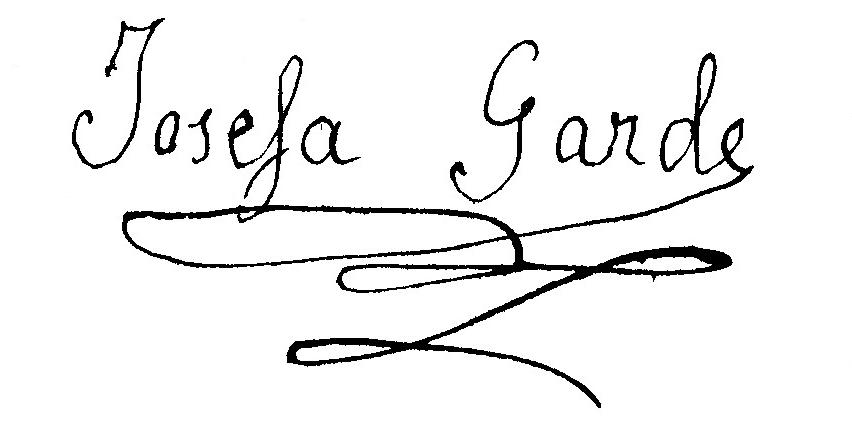 Josefa Garde